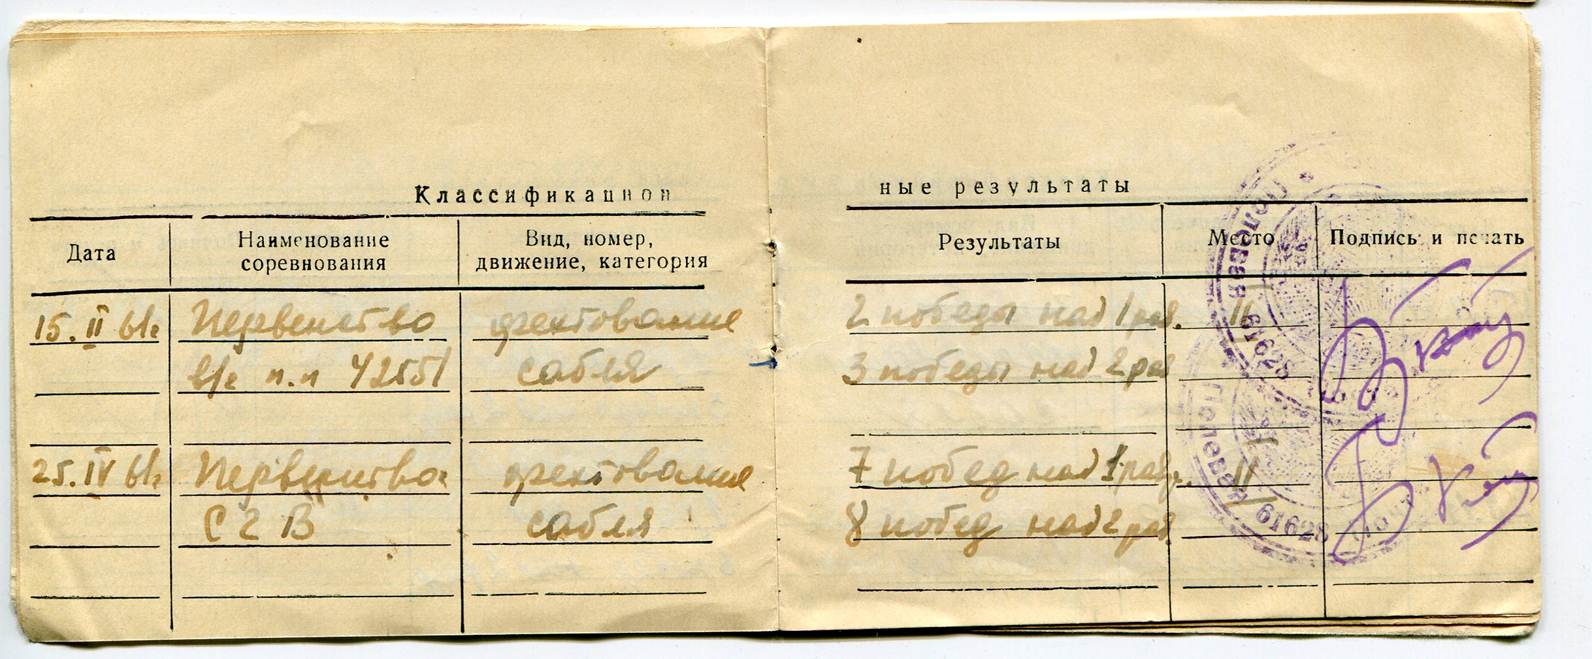 Классификацион ные результаты
Дата Наименование соревнования Вид, номер, движение, категория Результаты Место Подпись и печать
15.II 61г Первенство фехтование 2 победы над 1 раз. II
в/г п.п 42551 сабля 3 победы над 2 раз
25.IV 61г Первенство фехтование 7 побед над 1 разр. II
СГВ сабля 8 побед над 2 раз
Полевая 61628
Полевая 61628